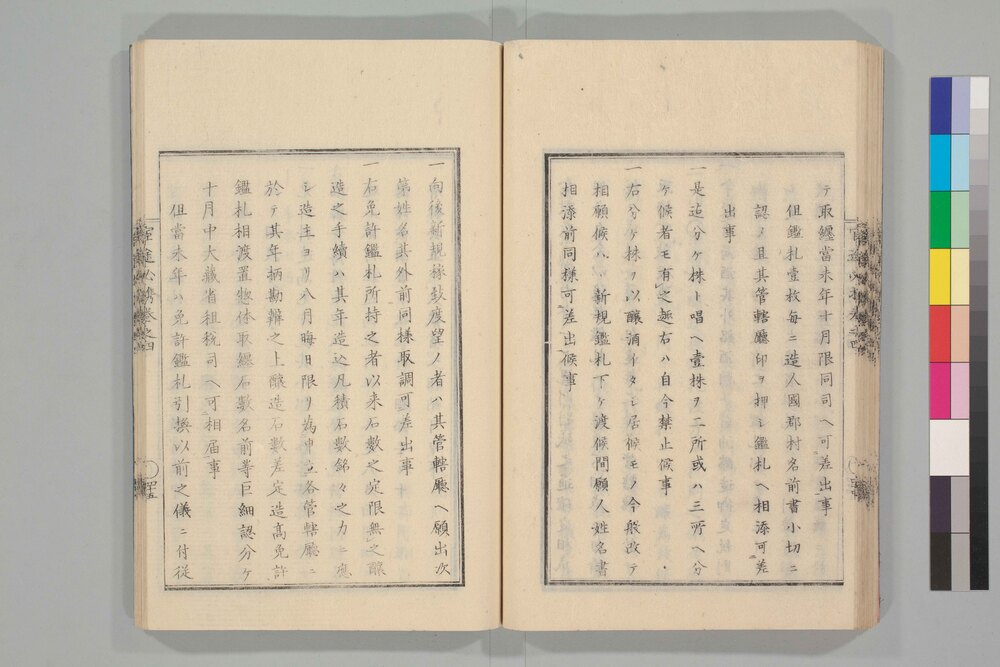 テ取纏當未年十月限同司ヘ可差出事
但鑑札壹枚每ニ造人國郡村名前書小切ニ
認メ且其管轄廳印ヲ押シ鑑札ヘ相添可差
出事
一是迄分ケ株ト唱ヘ壹株ヲ二所或ハ三所ヘ分
ケ候者モ有之趣右ハ自今禁止候事
一右分ケ株ヲ以釀酒イタシ居候モノ今般改テ
相願候ハヽ新規鑑札下ケ渡候間願人姓名書
相添前同樣可差出候事
一向後新規稼致度望ノ者ハ其管轄廳ヘ願出次
第姓名其外前同樣取調可差出事
一右免許鑑札所持之者以来石數之定限無之釀
造之手續ハ其年造込凡積石數銘々之力ニ應
シ造主ヨリ八月晦日限リ為申立各管轄廳ニ
於テ其年柄勘辨之上釀造石數差定造高免許
鑑札相渡置惣体取纏石數名前等巨細認分ケ
十月中大藏省租稅司ヘ可相届事
但當未年ハ免許鑑札引換以前之儀ニ付従
卷之四
四十五